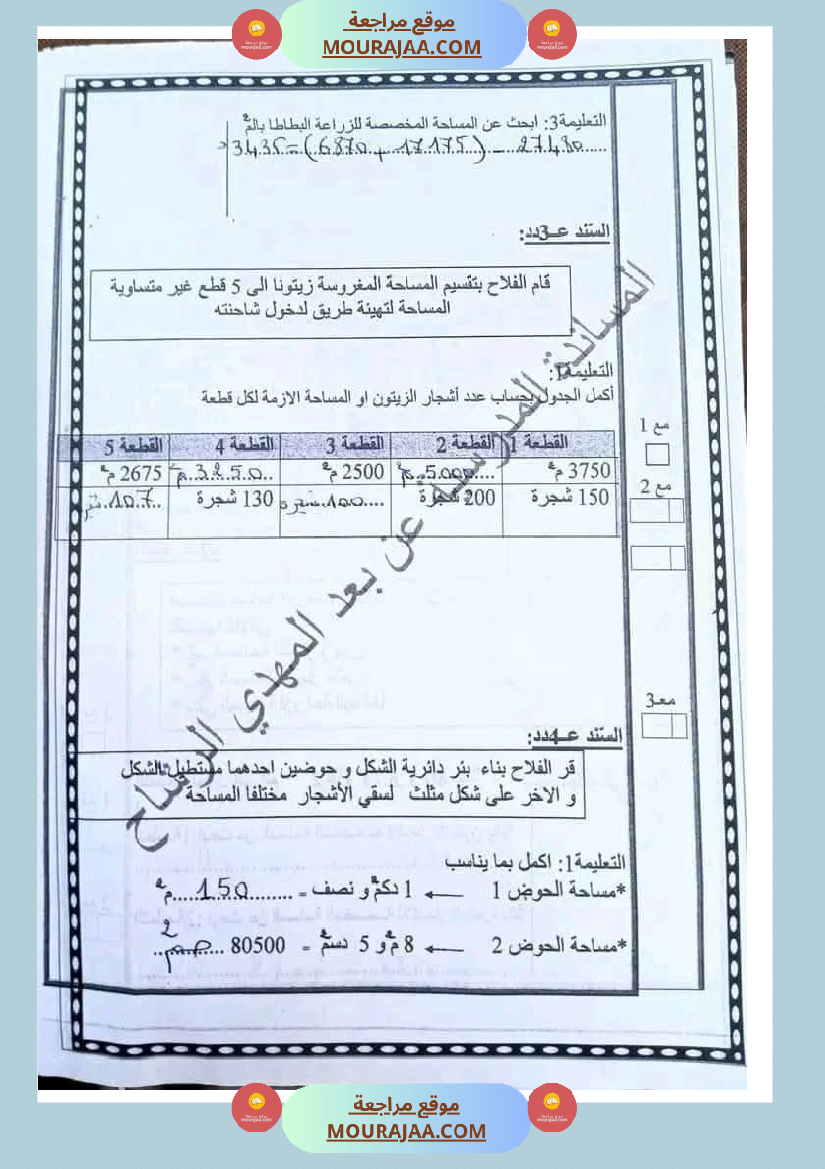 موقع مراجعة
MOURAJAA.COM
التعليمة3: ابحث عن المساحة المخصصة للزراعة البطاطا بالم²
27480 – (17175 + 6870) = 3435
السند عـ3ـدد:
قام الفلاح بتقسيم المساحة المغروسة زيتونا الى 5 قطع غير متساوية
المساحة لتهيئة طريق لدخول شاحنته
التعليمة1:
أكمل الجدول بحساب عدد أشجار الزيتون او المساحة الازمة لكل قطعة
القطعة 1 القطعة 2 القطعة 3 القطعة 4 القطعة 5
3750 م² 5000 م² 2500 م² 3250 م² 2675 م²
150 شجرة 200 شجرة 100 شجرة 130 شجرة 107
مع 1
مع 2
مع3
السند عـ4ـدد:
قر الفلاح بناء بئر دائرية الشكل و حوضين احدهما مستطيل الشكل
و الاخر على شكل مثلث لسقي الأشجار مختلفا المساحة
التعليمة1: اكمل بما يناسب
*مساحة الحوض 1 ← 1 دكم² و نصف = 150 م²
*مساحة الحوض 2 ← 8 م² و 5 دسم² = 80500 صم²
المساندة المدرسية عن بعد المهدي الرضاح
موقع مراجعة
MOURAJAA.COM